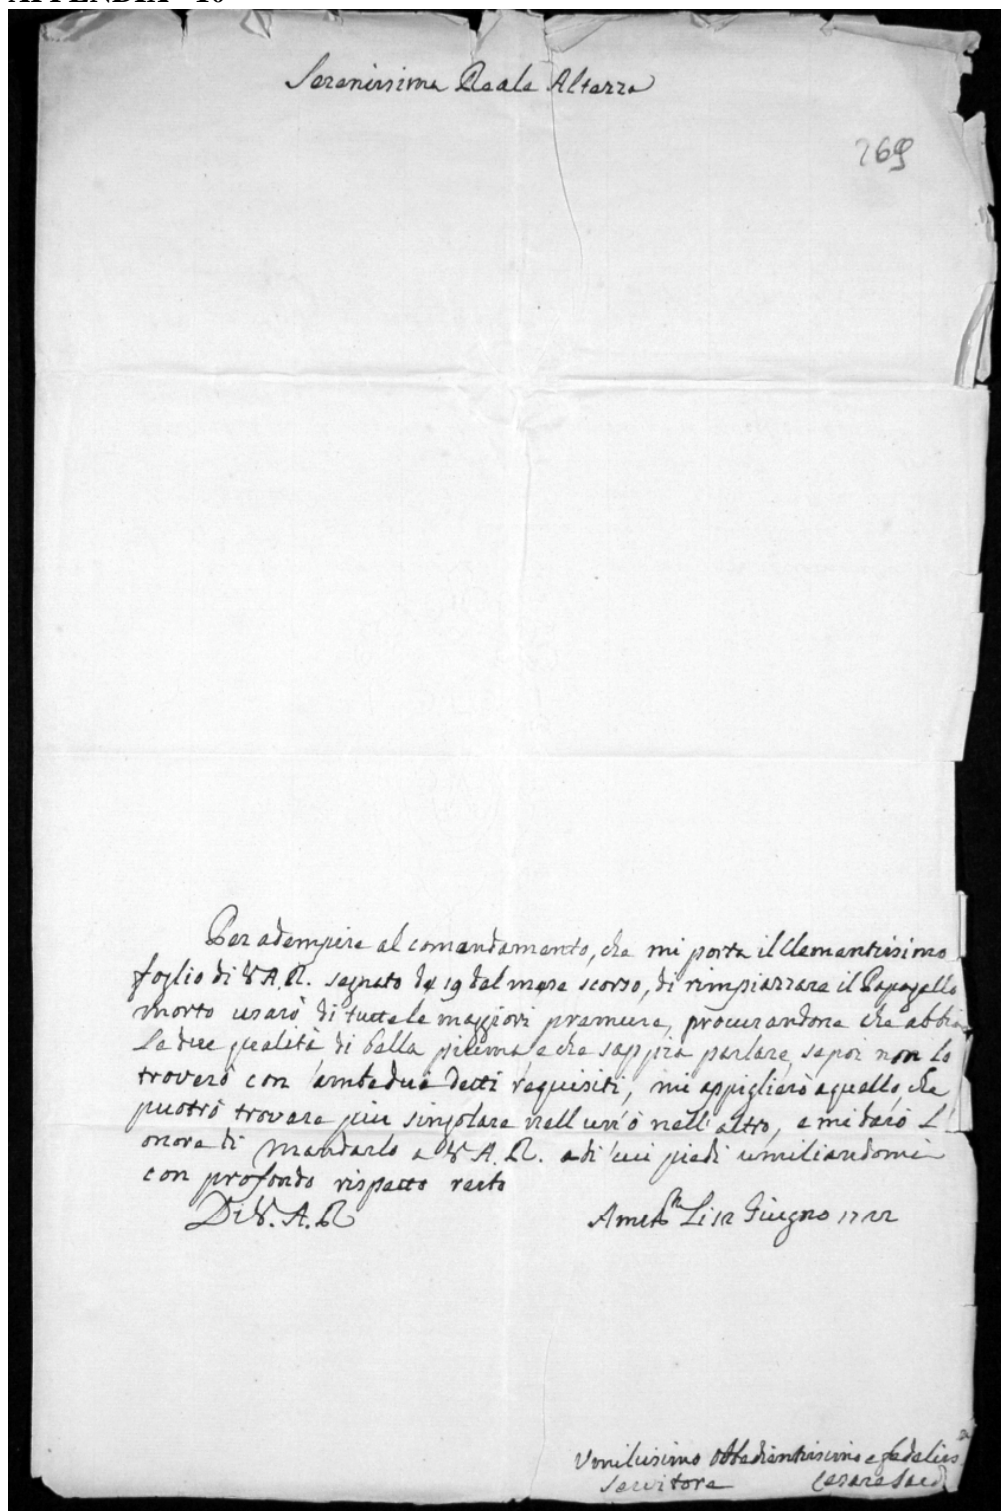 Serenissima Reale Altezza
269
Per adempire al comandamento, che mi porta il Clementissimo
foglio di V.A.R. segnato de 19 del mese scorso, di rimpiazzare il Papagallo
morto usarò di tutte le maggiori premure, procurandone che abbia
le due qualità di bella piuma e che sappia parlare, se poi non lo
troverò con ambedue detti requisiti, mi appiglierò a quello, che
puotrò trovare piu singolare nell un' ò nell' altro, e mi darò L'
onore di mandarlo a V.A.R. a di cui piedi umiliandomi
con profondo rispetto resto
Di V.A.R
Li 12 Giugno 1722
Umilissimo Obbedientissimo e fedeliss
Servitore
Cesare